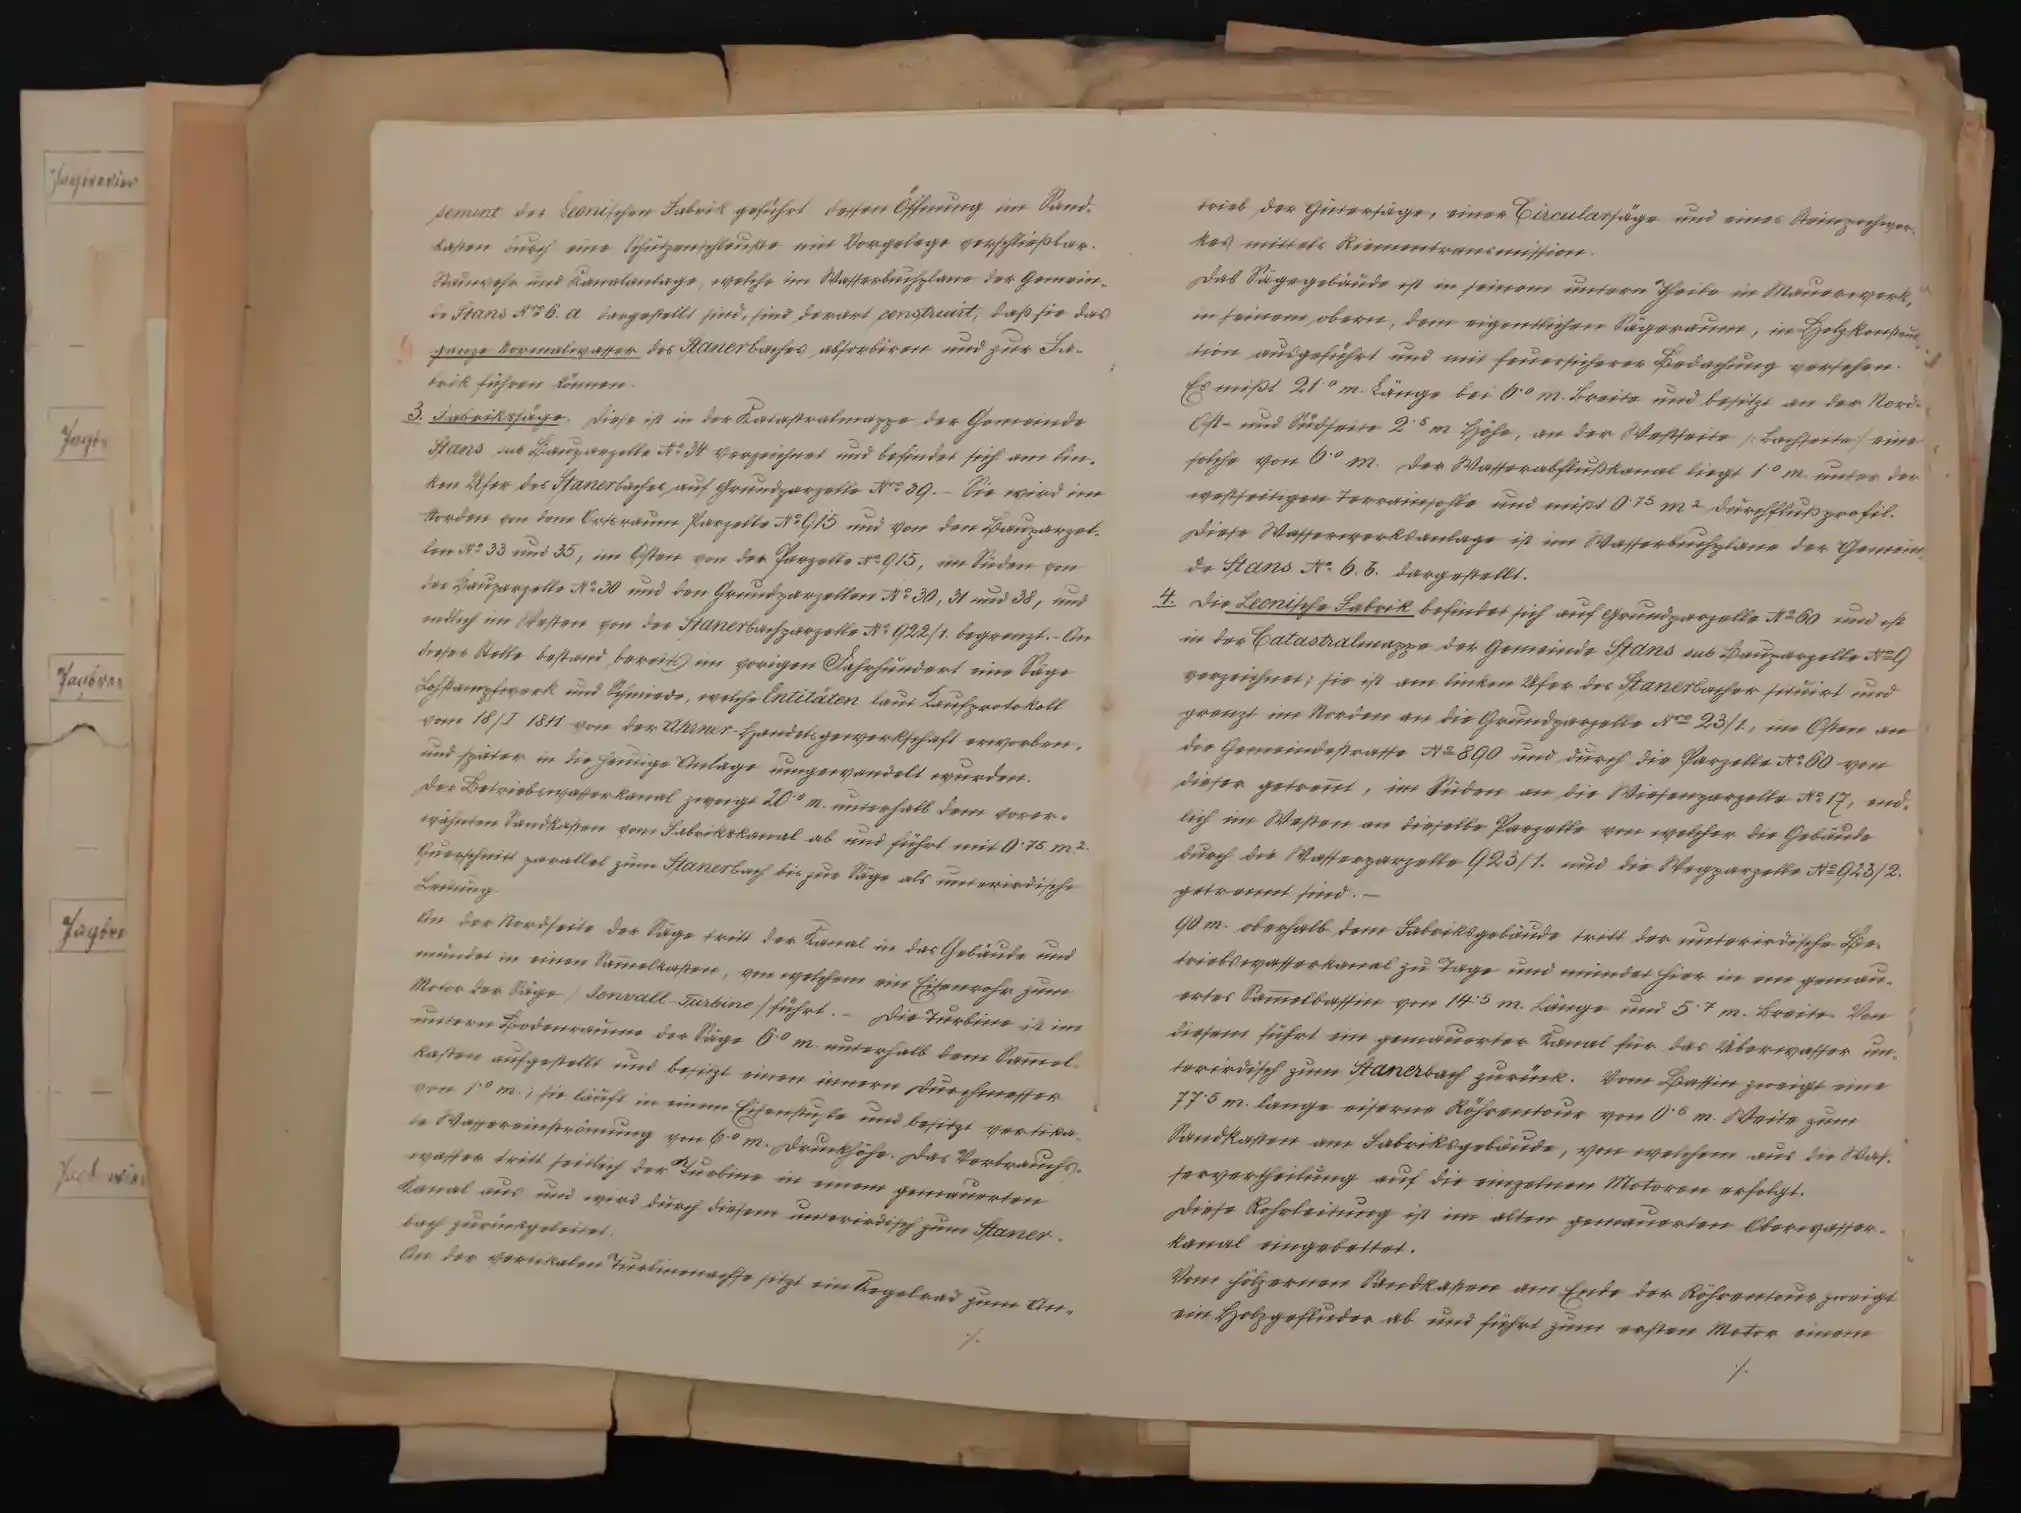 Jagdrevier
Jagdr
Jagdrev
Jagdre
sement der Leonischen Fabrik geführt dessen Öffnung im Sand-
kasten durch eine Schützenschleuße mit Vorgelege verschließbar.
Stauwehr und Kanalanlage, welche im Wasserbuchplane der Gemein-
de Stans Nro 6. a dargestellt sind, sind derart construirt, daß sie das
ganze Normalwasser des Stanerbaches absorbiren und zur Fa-
brik führen können.
3. Fabrikssäge. Diese ist in der Katastralmappe der Gemeinde
Stans sub Bauparzelle No 34 verzeichnet und befindet sich am lin-
ken Ufer des Stanerbaches auf Grundparzelle Nro 39. – Sie wird im
Norden von dem Ortsraum Parzelle No 915 und von den Bauparzel-
len No 33 und 35, im Osten von der Parzelle No 915, im Süden von
der Bauparzelle No 30 und den Grundparzellen No 30, 31 und 38, und
endlich im Westen von der Stanerbachparzelle No 922/1. begrenzt. – An
dieser Stelle bestand bereits im vorigen Jahrhundert eine Säge
Lohstampfwerk und Schmiede, welche Entitäten laut Kaufprotokoll
vom 18/I 1811 von der Ahrner-Handelsgewerkschaft erworben,
und später in die heutige Anlage umgewandelt wurden.
Der Betriebswasserkanal zweigt 20·0 m. unterhalb dem vorer-
wähnten Sandkasten vom Fabrikskanal ab und führt mit 0·75 m.2
Querschnitt parallel zum Stanerbach bis zur Säge als unterirdische
Leitung.
An der Nordseite der Säge tritt der Kanal in das Gebäude und
mündet in einen Sam̄elkasten, von welchem ein Eisenrohr zum
Motor der Säge /: Jonvall-Turbine :/ führt. – Die Turbine ist im
untern Bodenraume der Säge 6·0 m. unterhalb dem Sam̄el-
kasten aufgestellt und besitzt einen innern Durchmesser
von 1·0 m.; sie läuft in einem Eisenstuhle und besitzt vertika-
le Wassereinströmung von 6·0 m. Druckhöhe. Das Verbrauchs-
wasser tritt seitlich der Turbine in einem gemauerten
Kanal aus und wird durch diesem unterirdisch zum Staner-
bach zurückgeleitet.
An der vertikalen Turbinenachse sitzt ein Kegelrad zum An-
·/.
trieb der Gattersäge, einer Circularsäge und eines Steinpochwer-
kes mittels Riementransmission.
Das Sägegebäude ist in seinem untern Theile in Mauerwerk,
in seinem obern, dem eigentlichen Sägeraum, in Holzkonstruk-
tion ausgeführt und mit feuersicherer Bedachung versehen.
Es mißt 21·0 m. Länge bei 6·0 m. Breite und besitzt an der Nord-
Ost- und Südseite 2·5 m Höhe, an der Westseite /: Bachseite :/ eine
solche von 6·0 m. Der Wasserabflußkanal liegt 1·0 m. unter der
westseitigen Terrainsohle und mißt 0·75 m2 Durchflußprofil.
Diese Wasserwerksanlage ist im Wasserbuchplane der Gemein-
de Stans No. 6. b. dargestellt.
4. Die Leonische Fabrik befindet sich auf Grundparzelle No 60 und ist
in der Catastralmappe der Gemeinde Stans sub Bauparzelle No 9
verzeichnet; sie ist am linken Ufer des Stanerbaches situirt und
grenzt im Norden an die Grundparzelle Nro 23/1, im Osten an
die Gemeindestrasse No 890 und durch die Parzelle No 60 von
dieser getren̄t, im Süden an die Wiesenparzelle No 17, end-
lich im Westen an dieselbe Parzelle von welcher die Gebäude
durch die Wasserparzelle 923/1. und die Wegparzelle No 923/2.
getrennt sind. –
90 m. oberhalb dem Fabriksgebäude tritt der unterirdische Be-
triebswasserkanal zu Tage und mündet hier in ein gemau-
ertes Sam̄elbassin von 14·5 m. Länge und 5·7 m. Breite. Von
diesem führt ein gemauerter Kanal für das Überwasser un-
terirdisch zum Stanerbach zurück. Vom Bassin zweigt eine
77·5 m. lange eiserne Röhrentour von 0·6 m. Weite zum
Sandkasten am Fabriksgebäude, von welchem aus die Was-
servertheilung auf die einzelnen Motoren erfolgt.
Diese Rohrleitung ist im alten gemauerten Oberwasser-
kanal eingebettet.
Vom hölzernen Sandkasten am Ende der Röhrentour zweigt
ein Holzgefluder ab und führt zum ersten Motor einem
·/.